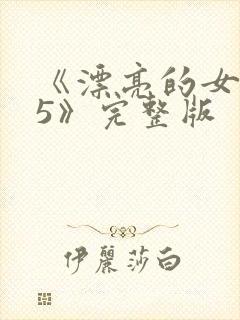 《漂亮的女
5》完整版
伊麗莎白